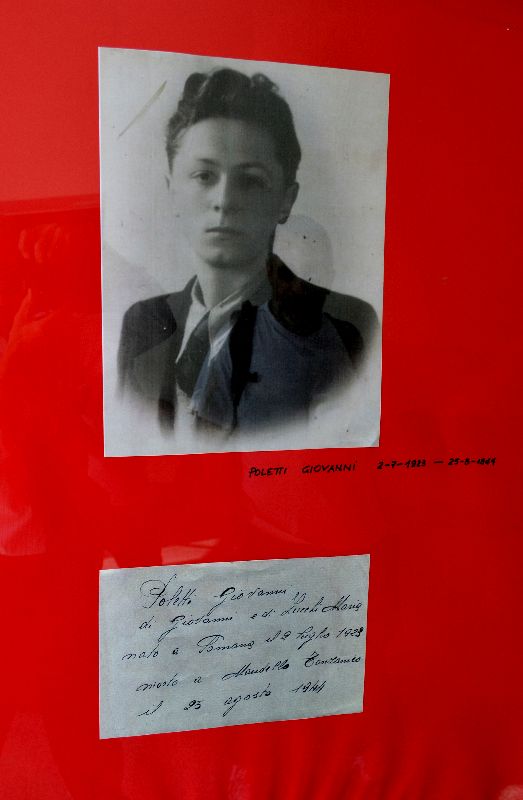 POLETTI GIOVANNI 2-7-1923 — 25-8-1944
Poletti Giovanni
di Giovanni e di Maria
nato a il 2 luglio 1923
morto a Mandello
il 25 agosto 1944